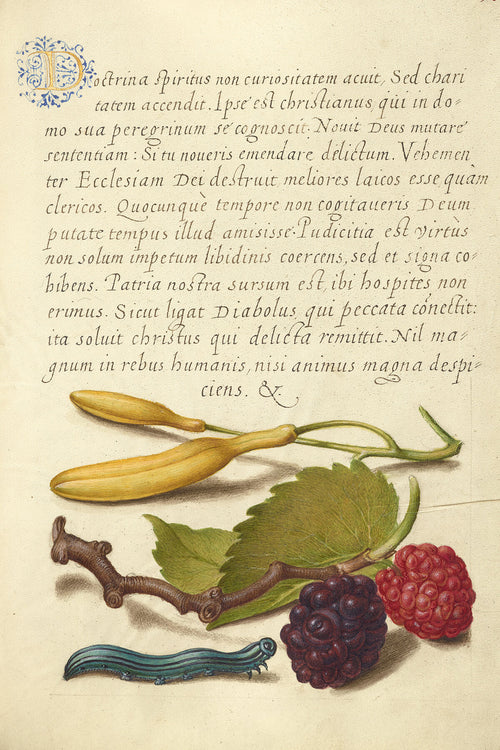 Doctrina spiritus non curiositatem acuit, Sed chari
tatem accendit. Ipse est christianus, qui in do=
mo sua peregrinum se cognoscit. Novit Deus mutare
sententiam: Si tu noveris emendare delictum. Vehemen
ter Ecclesiam Dei destruit, meliores laicos esse quàm
clericos. Quocunquè tempore non cogitaueris Deum,
putate tempus illud amisisse. Pudicitia est virtùs
non solum impetum libidinis coercens, sed et signa co=
hibens. Patria nostra sursum est, ibi hospites non
erimus. Sicut ligat Diabolus, qui peccata cōnectit:
ita soluit christus qui delicta remittit. Nil ma=
gnum in rebus humanis, nisi animus magna despi=
ciens. &.